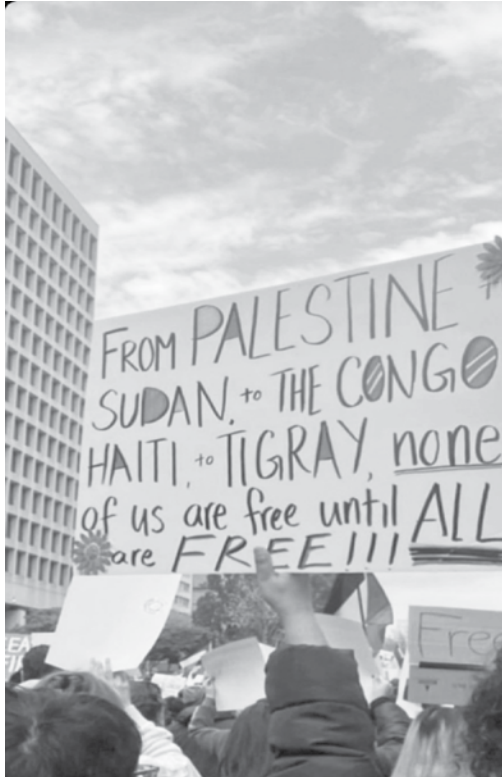 FROM PALESTINE T
SUDAN, to THE CONGO
HAITI, to TIGRAY, none
of us are free until ALL
are FREE!!!
Free